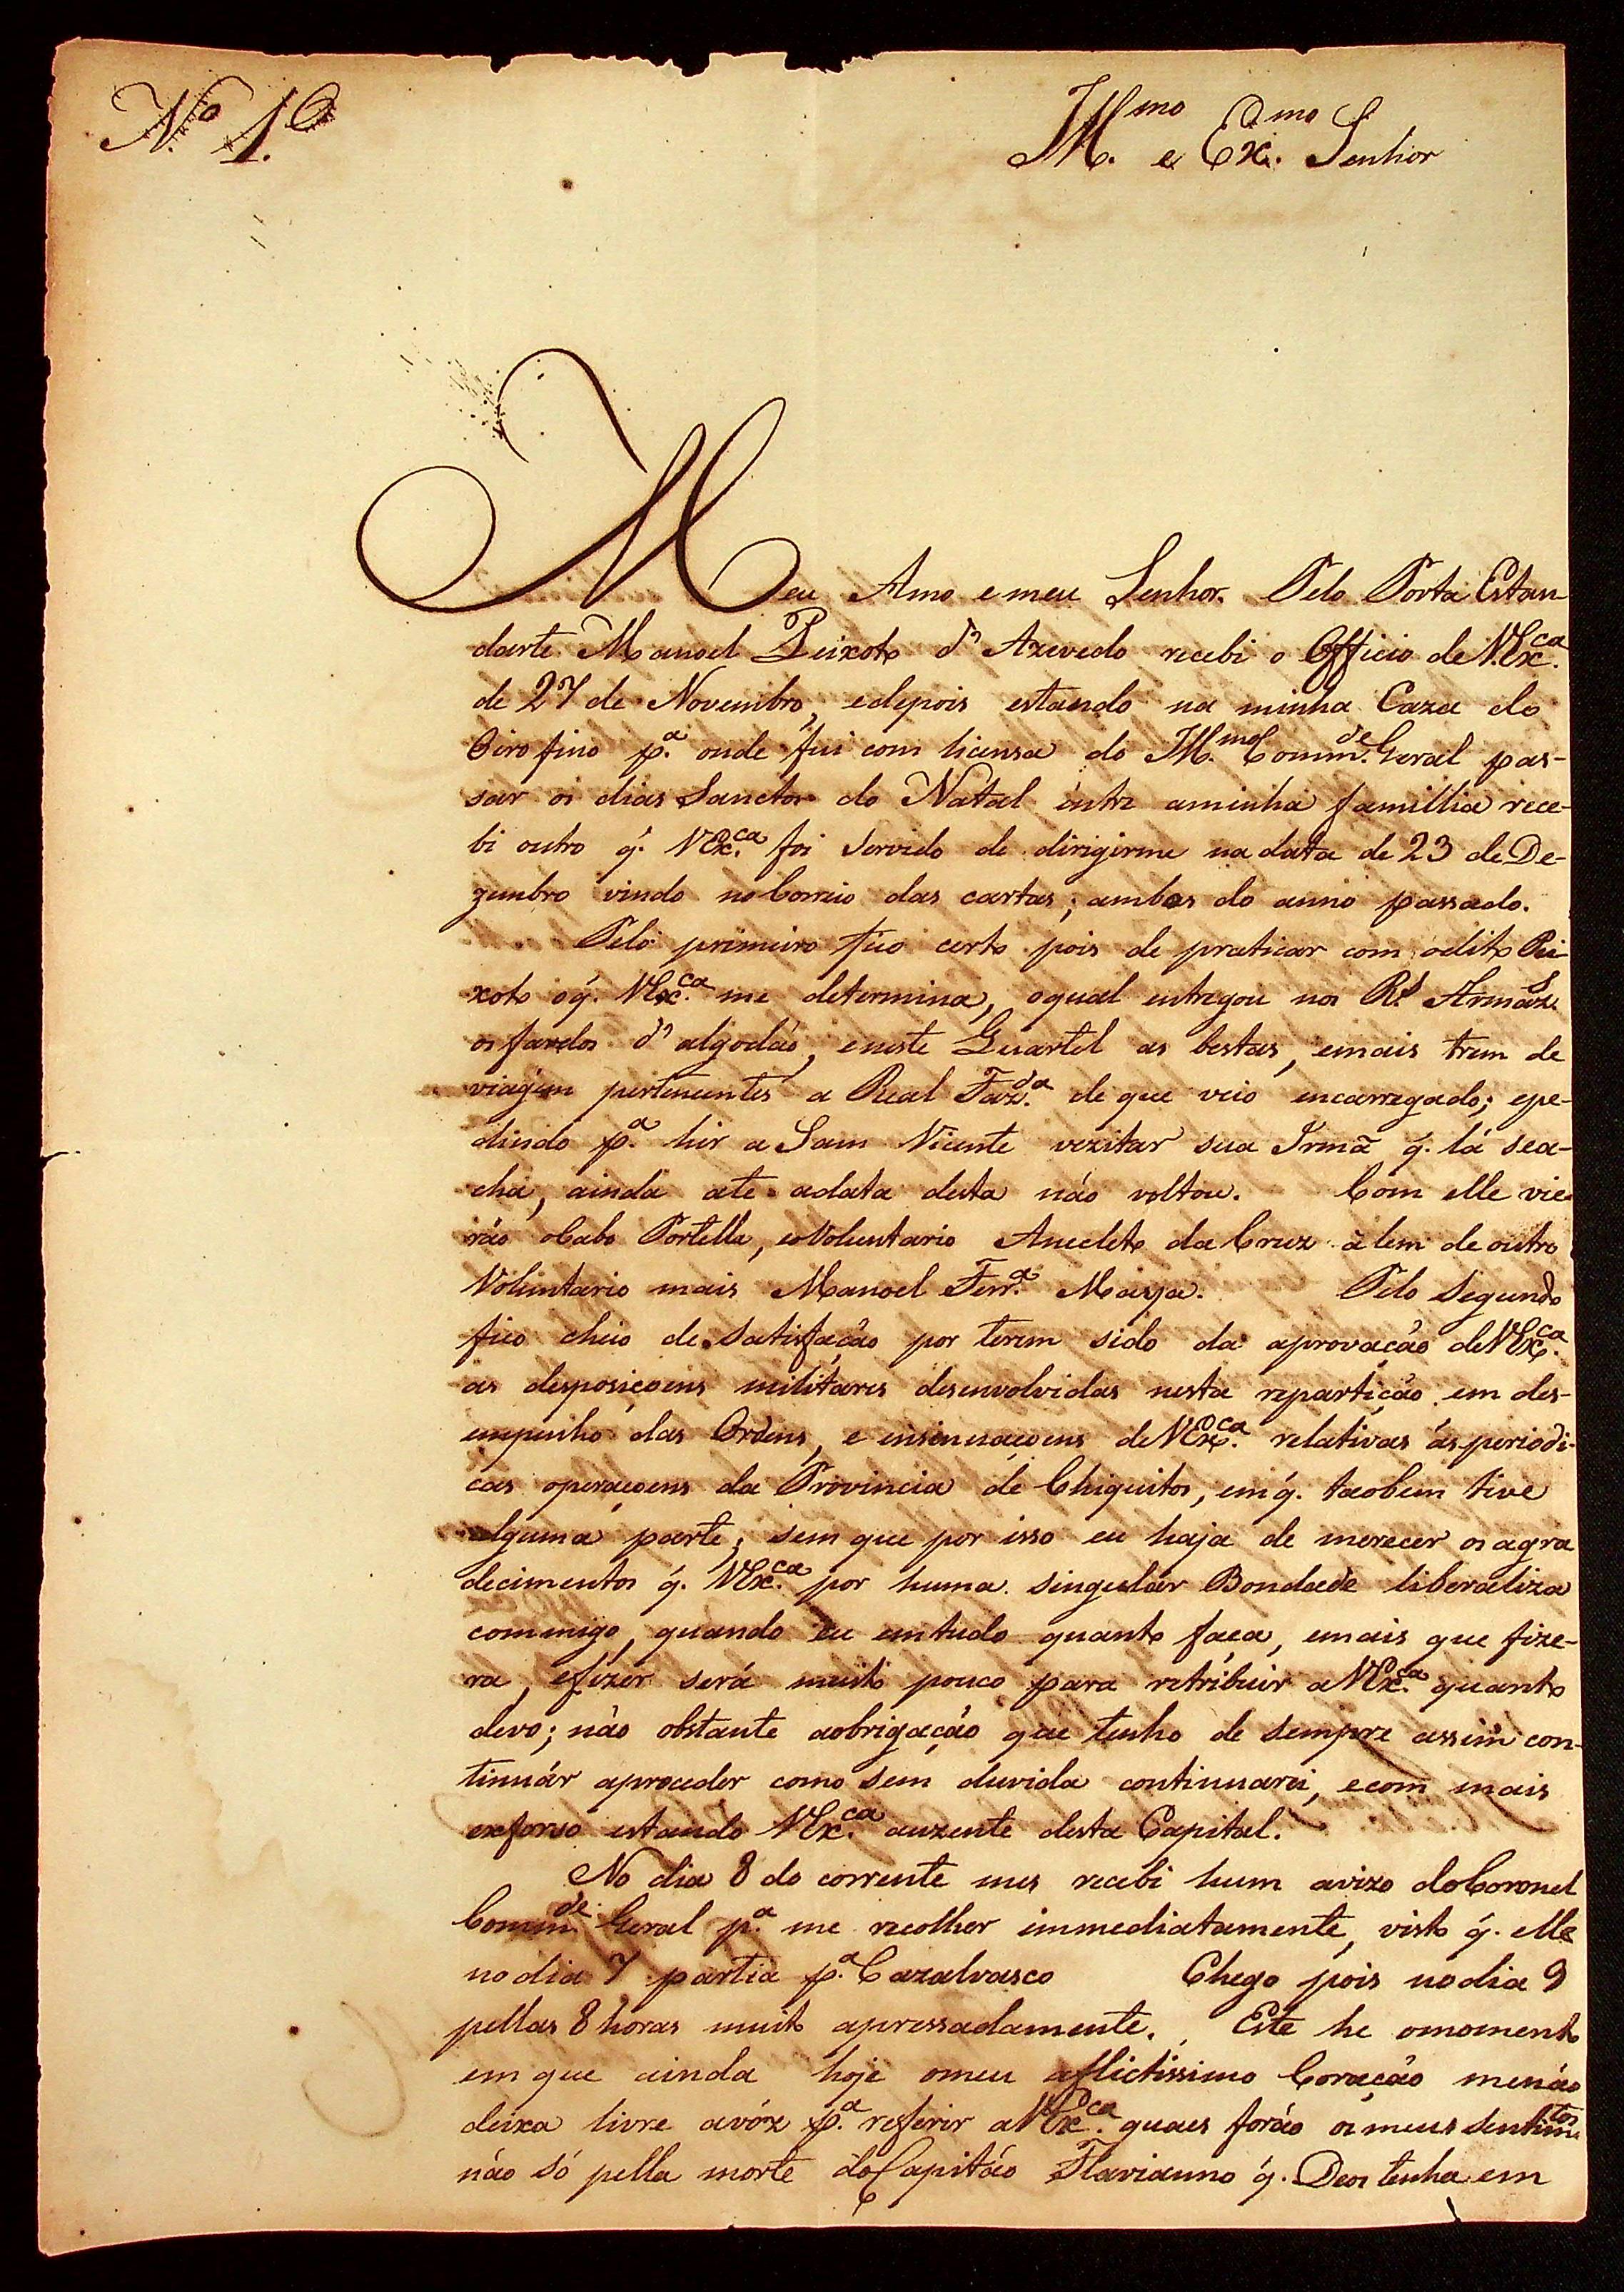 N.º 1.º
Ill.mo e Ex.mo Senhor
Meu Amo e meu Senhor. Pelo Porta Estan-
darte Manoel Peixoto d'Azevedo recebi o Officio de V.Ex.ca
de 27 de Novembro, e depois estando na minha Caza do
Oiro fino p.a onde fui com licensa do Ill.mo Comm.de Geral pas-
sar os dias Sanctos do Natal entre aminha famillia rece-
bi outro q. VEx.ca foi servido de dirigirme na data de 23 de De-
zembro vindo no Correio das cartas; ambos do anno passado.
Pelo primeiro fico certo pois de praticar com odito Pei-
xoto oq. VEx.ca me determina, oqual entregou nos R.s Armaz.s
os fardos d'algodão, eneste Quartel as bestas, emais trem de
viagem pertencentes a Real Faz.da de que veio encarregado; epe-
dindo p.a hir a Sam Vicente vezitar sua Irmã q. lá sea-
cha, ainda ate adata desta não voltou. Com elle vie-
rão oCabo Portella, eoVoluntario Anecleto da Cruz alem de outro
Voluntario mais Manoel Ferr.a Pelo segundo
fico cheio de satisfação por terem sido da aprovação deVEx.ca
as desposiçoens militares desenvolvidas nesta repartição em des-
empenho das Ordens, e ensinuaçoens deVEx.ca relativas ás periodi-
cas operaçoens da Provincia de Chiquitos, emq. taobem tive
alguma parte; sem que por isso eu haja de merecer os agra
decimentos q. VEx.ca por huma singular Bondade liberaliza
commigo, quando eu emtudo quanto faça, emais que fize-
ra, efizer será muito pouco para retribuir aVEx.ca quanto
devo; não obstante aobrigação que tenho de sempre assim con-
tinuár aproceder como sem duvida continuarei, ecom mais
exforso estando VEx.ca auzente desta Capital.
No dia 8 do corrente mes recebi hum avizo doCoronel
Comm.de Geral p.a me recolher immediatamente, visto q. elle
no dia 7 partia p.a Cazalvasco Chego pois nodia 9
pellas 8 horas muito apressadamente. Este he omomento
em que ainda hoje omeu aflictissimo Coração menão
deixa livre avóz p.a referir aVEx.ca quaes forão os meus sentim.tos
não só pella morte doCapitão Flavianno q. Deos tenha em